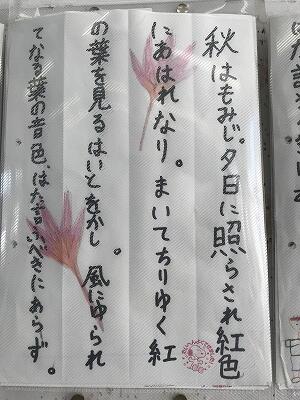 秋はもみじ。夕日に照らされ紅色
にあはれなり。まいてちりゆく紅
の葉を見るはいとをかし。風にゆられ
てなる葉の音色、はた言ふべきにあらず。